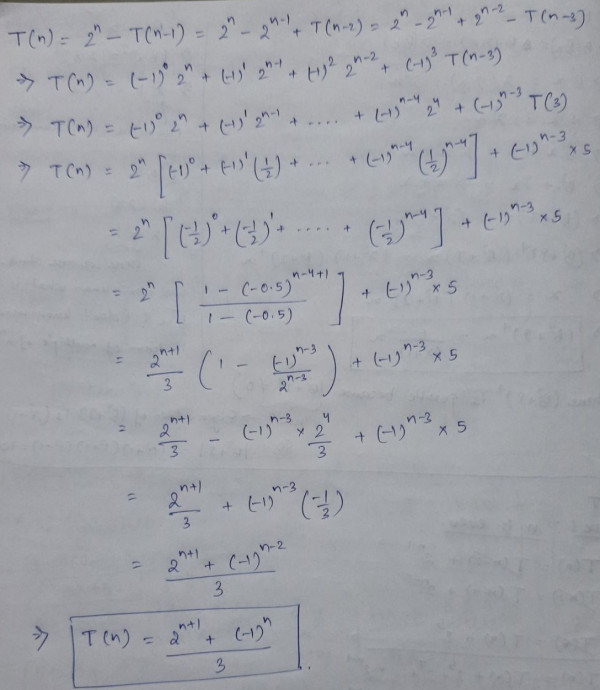 T(n) = 2^n - T(n-1) = 2^n - 2^{n-1} + T(n-2) = 2^n - 2^{n-1} + 2^{n-2} - T(n-3)
⇒ T(n) = (-1)^0 2^n + (-1)^1 2^{n-1} + (-1)^2 2^{n-2} + (-1)^3 T(n-3)
⇒ T(n) = (-1)^0 2^n + (-1)^1 2^{n-1} + .... + (-1)^{n-4} 2^4 + (-1)^{n-3} T(3)
⇒ T(n) = 2^n [ (-1)^0 + (-1)^1 (1/2) + ... + (-1)^{n-4} (1/2)^{n-4} ] + (-1)^{n-3} × 5
= 2^n [ (-1/2)^0 + (-1/2)^1 + ..... + (-1/2)^{n-4} ] + (-1)^{n-3} × 5
= 2^n [ (1 - (-0.5)^{n-4+1}) / (1 - (-0.5)) ] + (-1)^{n-3} × 5
= 2^{n+1}/3 ( 1 - (-1)^{n-3}/2^{n-3} ) + (-1)^{n-3} × 5
= 2^{n+1}/3 - (-1)^{n-3} × 2^4/3 + (-1)^{n-3} × 5
= 2^{n+1}/3 + (-1)^{n-3} (-1/3)
= (2^{n+1} + (-1)^{n-2})/3
⇒ T(n) = (2^{n+1} + (-1)^n)/3 .